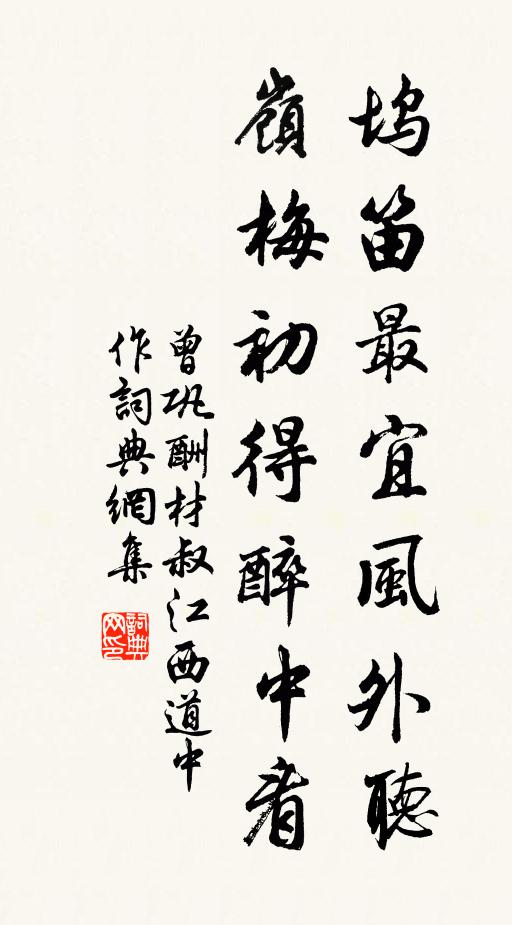 塢笛最宜風外聽
嶺梅初得醉中看
曾巩酬材叔江西道中
作詞典網集
詞典网印